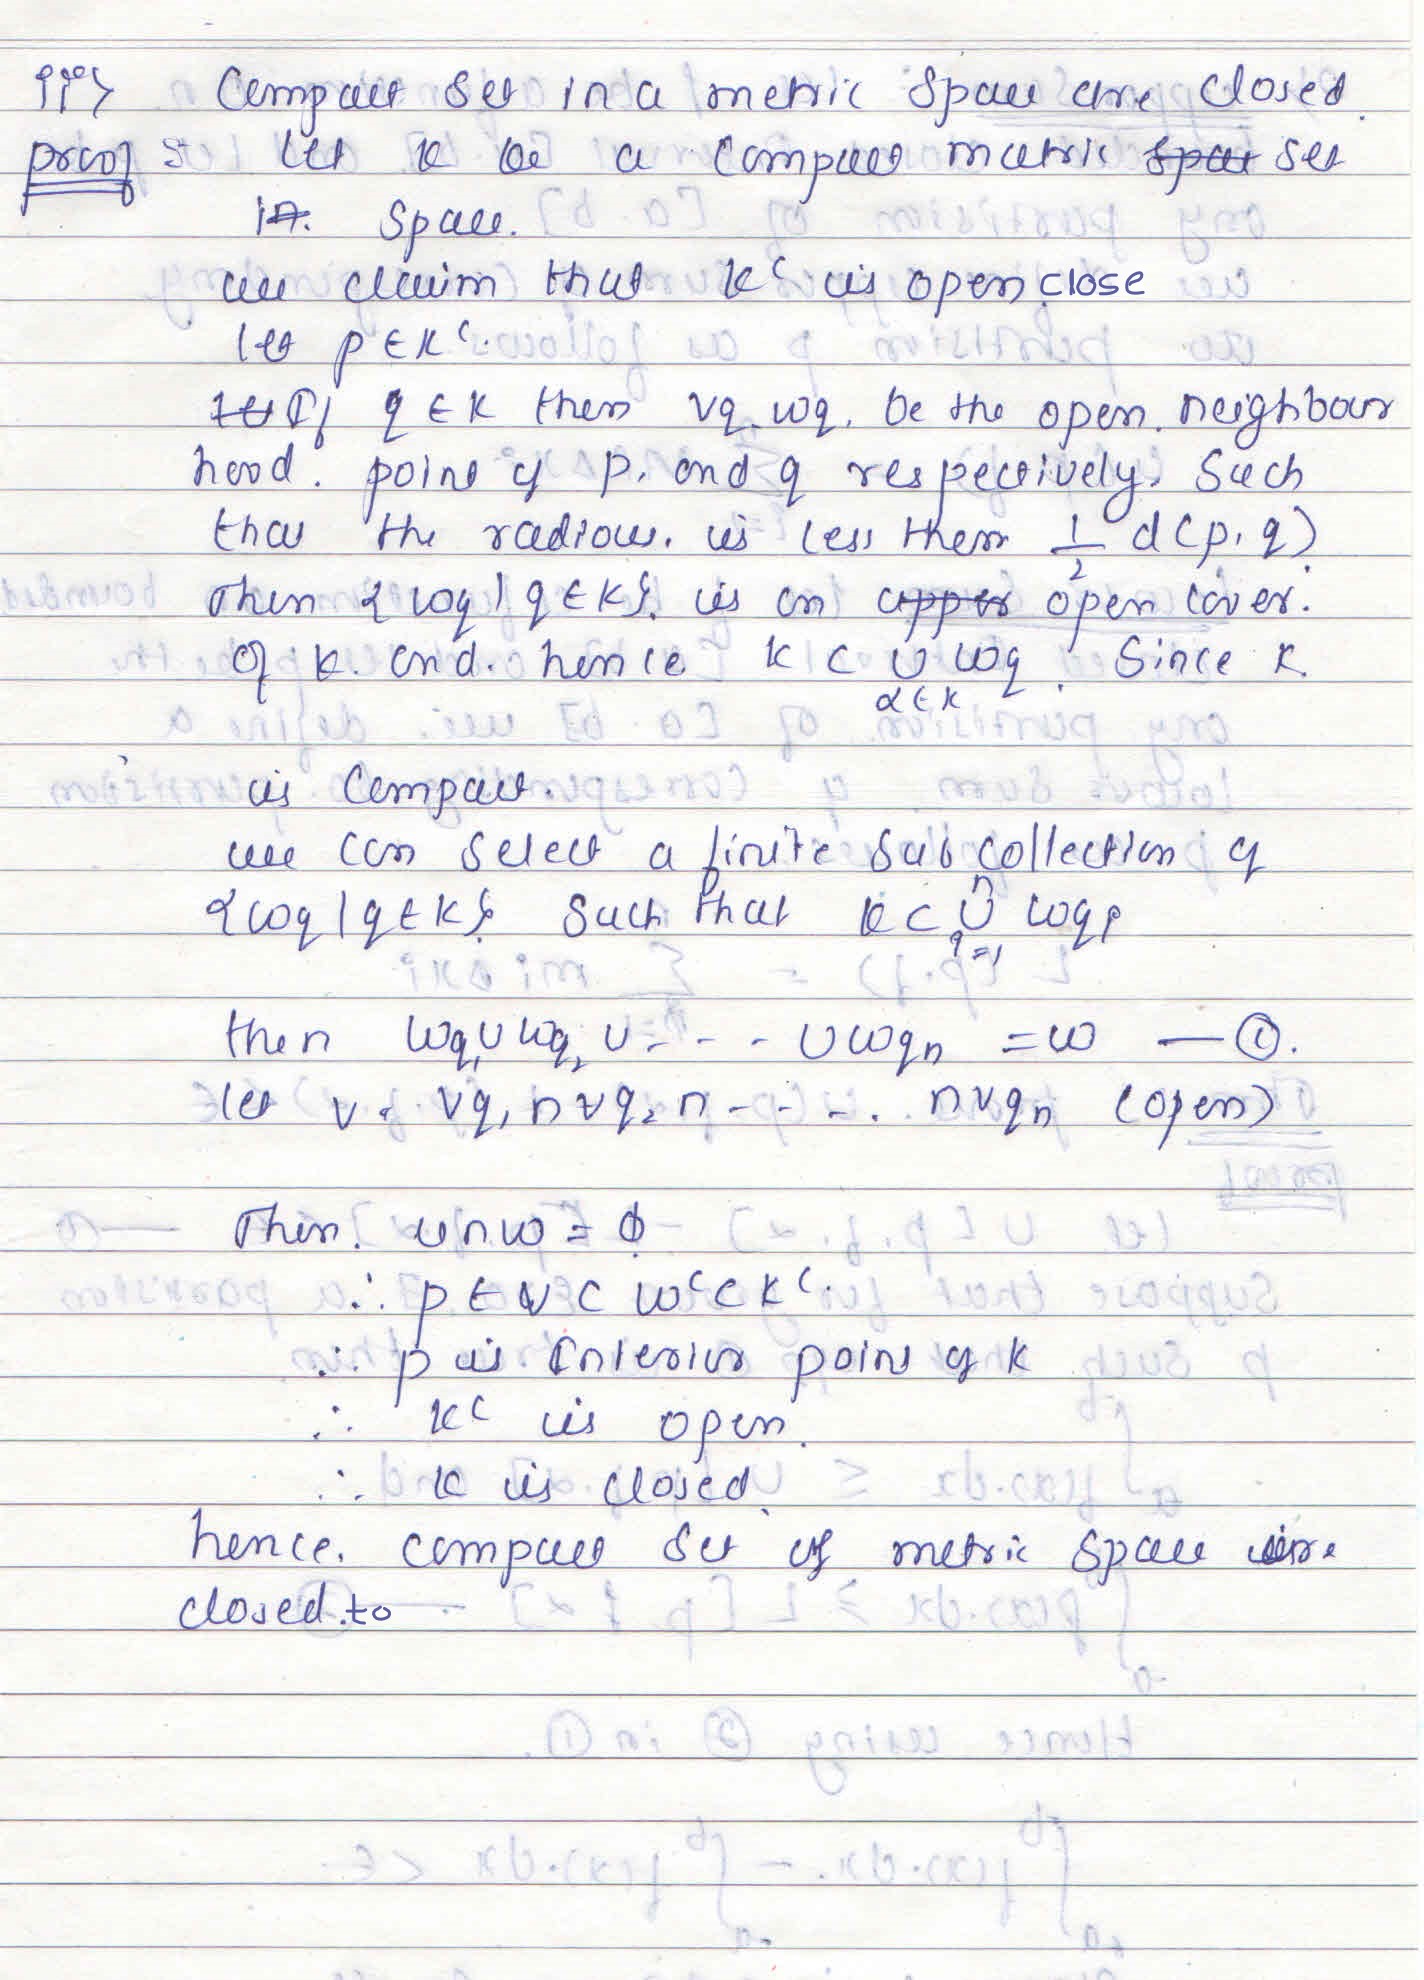 iii) Compact set in a metric space are closed.
proof :- Let K be a compact metric spac set
in. space.
we claim that Kᶜ is open. close
let p ∈ Kᶜ.
let If q ∈ K then Vq, Wq, be the open. neighbour
hood. point of p. and q respectively. such
that the radious. is less then 1/2 d(p, q).
Then {Wq | q ∈ K}. is an upper open cover.
of K. and. hence K ⊂ ∪ Wq. Since K.
α ∈ K
is compact.
we can select a finite sub collection of
{Wq | q ∈ K}. such that K ⊂ ∪ⁿᵢ₌₁ Wqᵢ
then Wq₁ ∪ Wq₂ ∪ - - - ∪ Wqₙ = W — ①.
let V = Vq₁ ∩ Vq₂ ∩ - - - . ∩ Vqₙ (open)
Then. V ∩ W = ϕ
∴ p ∈ V ⊂ Wᶜ ⊂ Kᶜ.
∴ p is Interior point of K
∴ Kᶜ is open.
∴ K is closed.
hence. compact set of metric space are.
closed. to